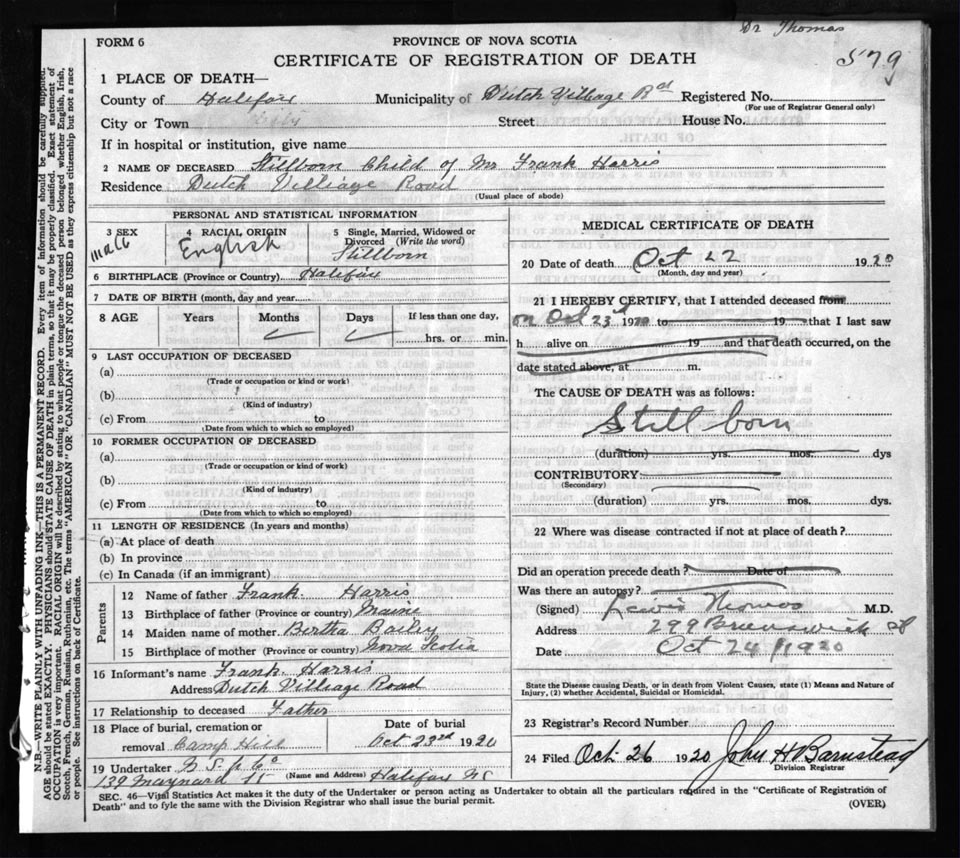 Dr Thomas
579
FORM 6
PROVINCE OF NOVA SCOTIA
CERTIFICATE OF REGISTRATION OF DEATH
1 PLACE OF DEATH—
County of Halifax Municipality of Dutch Village Rd Registered No.
(For use of Registrar General only)
City or Town Street House No.
If in hospital or institution, give name
2 NAME OF DECEASED Stillborn Child of Mr Frank Harris
Residence Dutch Villiage Road
(Usual place of abode)
PERSONAL AND STATISTICAL INFORMATION
3 SEX 4 RACIAL ORIGIN 5 Single, Married, Widowed or
Divorced (Write the word)
male English Stillborn
6 BIRTHPLACE (Province or Country) Halifax
7 DATE OF BIRTH (month, day and year)
8 AGE Years Months Days If less than one day,
hrs. or min.
9 LAST OCCUPATION OF DECEASED
(a)
(Trade or occupation or kind of work)
(b)
(Kind of industry)
(c) From to
(Date from which to which so employed)
10 FORMER OCCUPATION OF DECEASED
(a)
(Trade or occupation or kind of work)
(b)
(Kind of industry)
(c) From to
(Date from which to which so employed)
11 LENGTH OF RESIDENCE (In years and months)
(a) At place of death
(b) In province
(c) In Canada (if an immigrant)
Parents
12 Name of father Frank Harris
13 Birthplace of father (Province or country) Maine
14 Maiden name of mother Bertha Bailey
15 Birthplace of mother (Province or country) Nova Scotia
16 Informant's name Frank Harris
Address Dutch Villiage Road
17 Relationship to deceased Father
18 Place of burial, cremation or
removal Camp Hill
Date of burial
Oct 23rd 1920
19 Undertaker
139 Maynard St (Name and Address) Halifax NS
MEDICAL CERTIFICATE OF DEATH
20 Date of death Oct 22 1920
(Month, day and year)
21 I HEREBY CERTIFY, that I attended deceased from
on Oct 23rd 1920 to 19 that I last saw
h alive on 19 and that death occurred, on the
date stated above, at m.
The CAUSE OF DEATH was as follows:
Still born
(duration) yrs. mos. dys
CONTRIBUTORY:
(Secondary)
(duration) yrs. mos. dys.
22 Where was disease contracted if not at place of death?
Did an operation precede death? Date of
Was there an autopsy?
(Signed) Lewis Thomas M.D.
Address 299 Brunswick St
Date Oct 24/1920
State the Disease causing Death, or in death from Violent Causes, state (1) Means and Nature of
Injury, (2) whether Accidental, Suicidal or Homicidal.
23 Registrar's Record Number
24 Filed Oct. 26 1920 John H Barnstead
Division Registrar
SEC. 46—Vital Statistics Act makes it the duty of the Undertaker or person acting as Undertaker to obtain all the particulars required in the "Certificate of Registration of
Death" and to fyle the same with the Division Registrar who shall issue the burial permit.
(OVER)
N.B.—WRITE PLAINLY WITH UNFADING INK—THIS IS A PERMANENT RECORD. Every item of information should be carefully supplied.
AGE should be stated EXACTLY. PHYSICIANS should STATE CAUSE OF DEATH in plain terms, so that it may be properly classified. Exact statement of
OCCUPATION is very important. RACIAL ORIGIN will be described by stating to what people or tongue the deceased person belonged, whether English, Irish,
Scotch, French, German, Russian, Ruthenian, etc. The terms "AMERICAN" OR "CANADIAN" MUST NOT BE USED as they express citizenship but not a race
or people. See instructions on back of Certificate.